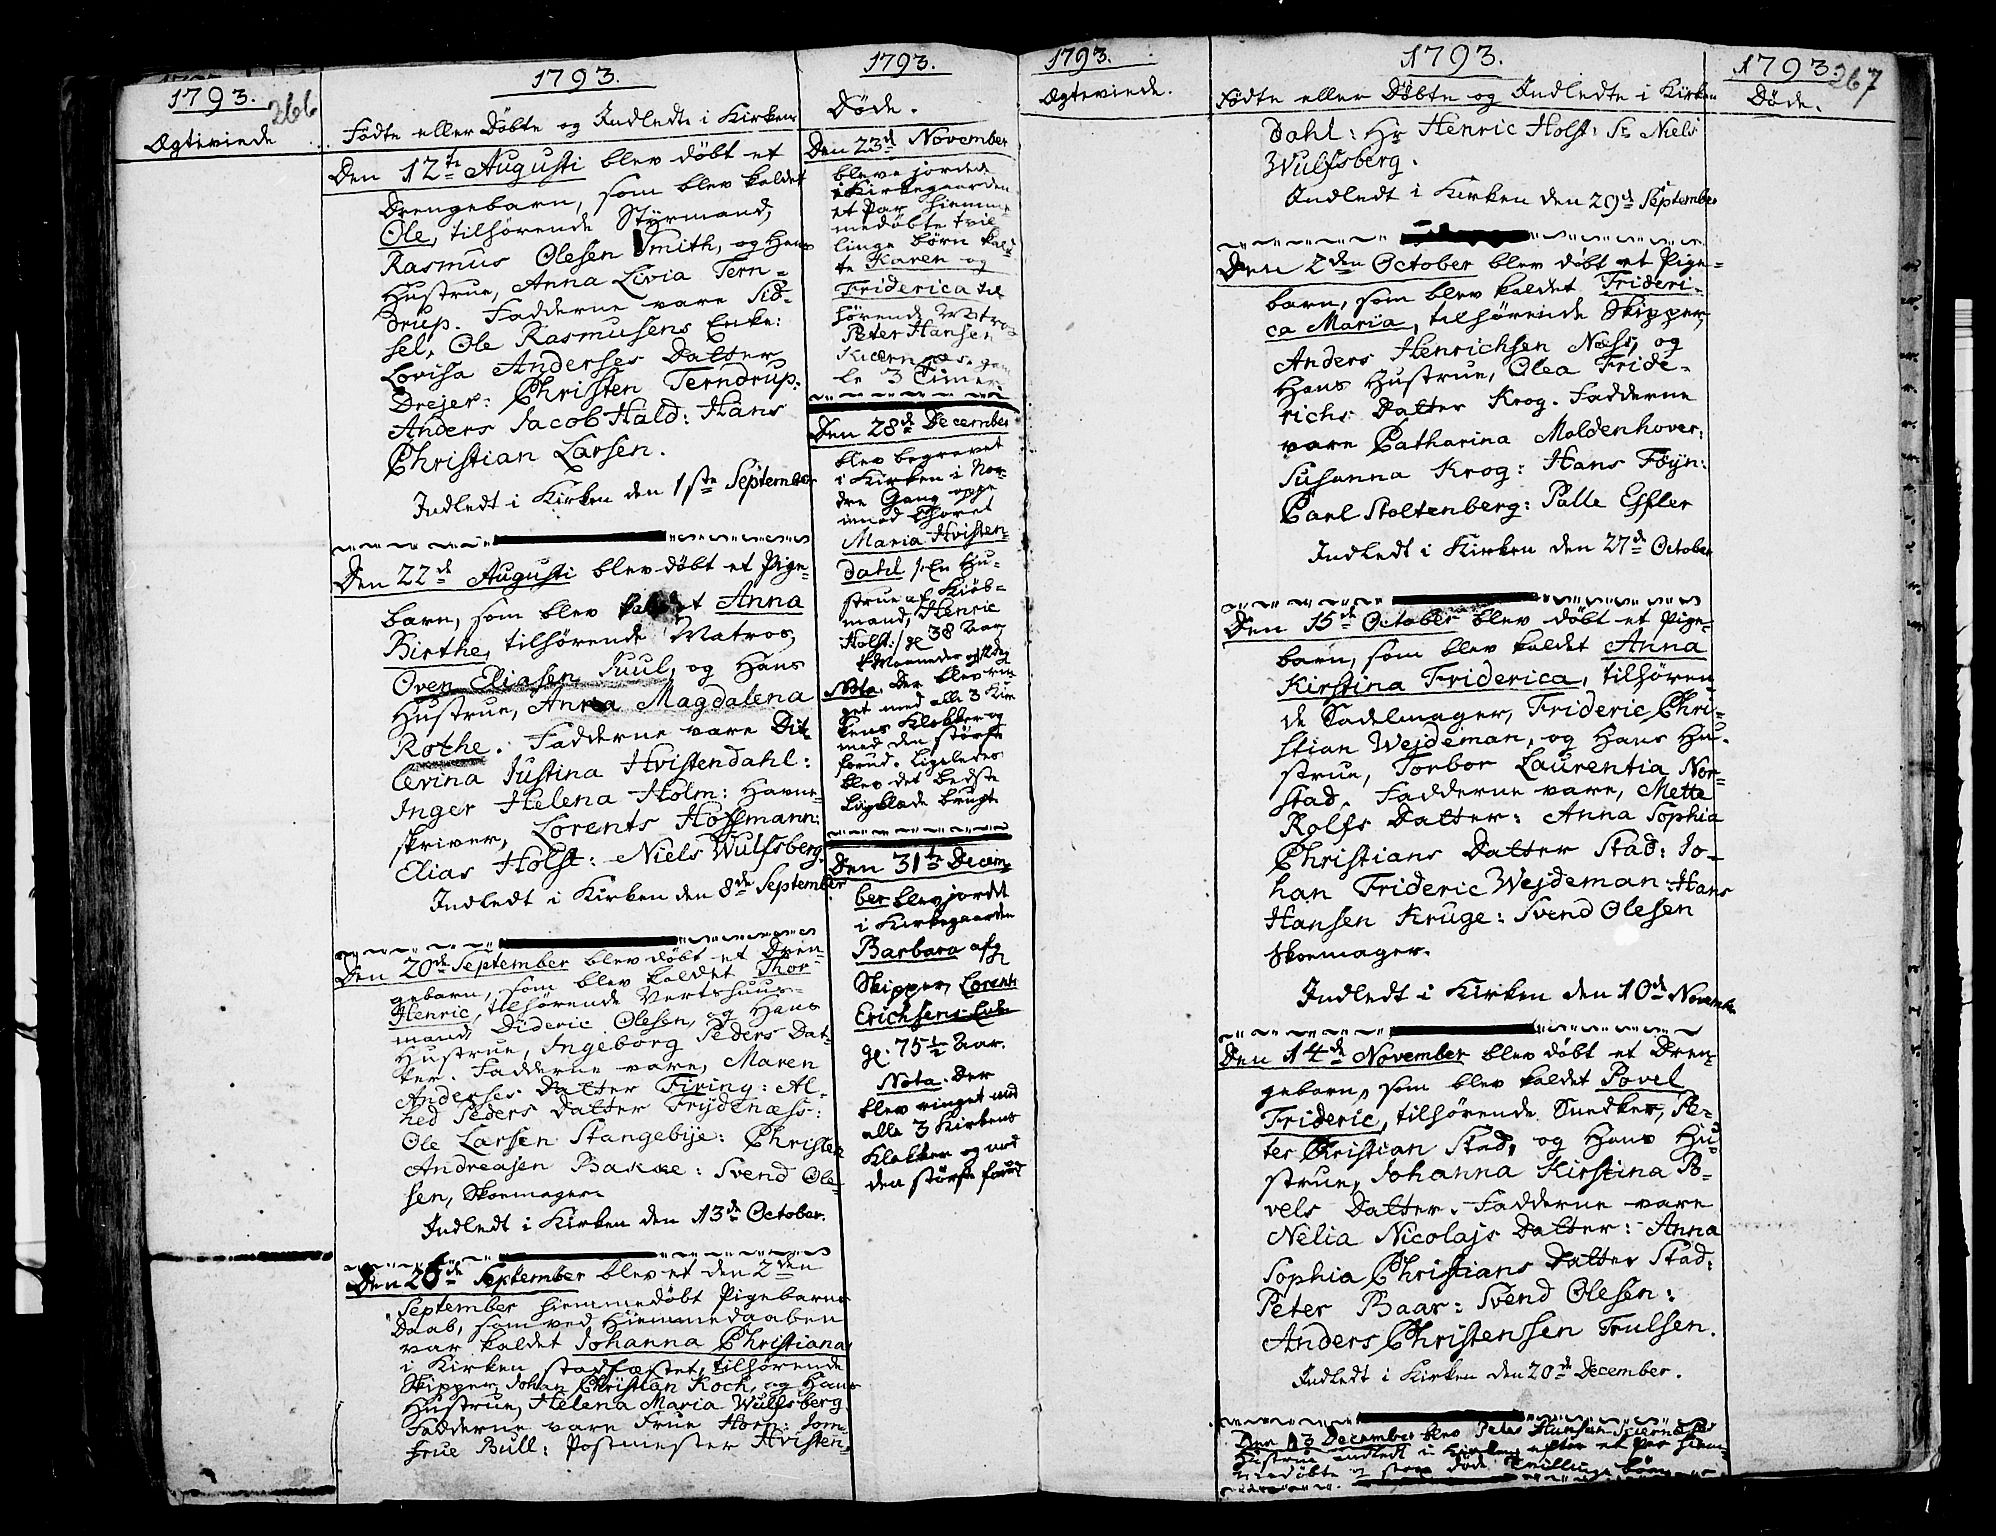 1793.
266
Ægteviede
1793.
Fødte eller Døbte og Indledte i Kirken
Den 12te Augusti blev døbt et
Drengebarn, som blev kaldet
Ole, tilhørende Styrmand,
Rasmus Olesen Smith, og Hans
Hustrue, Anna Livia Tern-
drup. Fadderne vare Sid-
sel, Ole Rasmusens Enke:
Lovisa Anderses Datter
Drejer: Christen Terndrup:
Anders Jacob Hald: Hans
Christian Larsen.
Indledt i Kirken den 1ste September
Den 22de Augusti blev døbt et Pige-
barn, som blev kaldet Anna
Birthe, tilhørende Matros,
Oven Eliasen Juul, og Hans
Hustrue, Anna Magdalena
Rothe. Fadderne vare Dit-
levina Justina Hvistendahl:
Inger Helena Holm: Havne-
skriver, Lorents Hoffmann:
Elias Holst: Niels Wulfsberg.
Indledt i Kirken den 8de September
Den 20de September blev døbt et Dren-
gebarn, som blev kaldet Thor
Henric, tilhørende Vertshuus-
mand, Dideric Olesen, og Hans
Hustrue, Ingeborg Peders Dat-
ter. Fadderne vare, Maren
Anderses Datter Firing: Al-
hed Peders Datter Frydenæss:
Ole Larsen Stangebye: Christen
Andreasen Bakke: Svend Ole-
sen, Skoemager.
Indledt i Kirken den 13de October.
Den 26de September blev et den 2den
September hiemmedøbt Pigebarns
Daab, som ved Hiemmedaaben
var kaldet Johanna Christiana,
i Kirken stadfæstet, tilhørende
Skipper, Johan Christian Koch, og Hans
Hustrue, Helena Maria Wulfsberg
Fadderne vare Frue Horn: Jom-
frue Bull: Postmester Hvisten-
1793.
Døde.
Den 23de November
bleve jordede
i Kirkegaarden
et Par hiemme-
medøbte tvil-
linge børn kald-
te Karen og
Friderica til
hørende Matros
Peter Hansen
Kiærnæs, gam
le 3 Timer.
Den 28de December
blev begravet
i Kirken i Nor-
dre Gang oppe
imod Choret
Maria Hvisten-
dahl /: En Hu-
strue af Kiøb-
mand, Henric
Holst :/ gl 38 Aar
Nota. Der blev rin
get med alle 3 Kir
kens Klokker og
med den største
forud. Ligeledes
blev det bedste
Liigklæde brugt
Den 31te Decem-
ber blev jordet
i Kirkegaarden
Barbara afg
Skipper, Lorents
Erichsens Enke
gl. 75 1/2 Aar.
Nota. Der
blev ringet med
alle 3 Kirkens
Klokker og med
den største forud
1793.
Ægteviede.
1793.
Fødte eller Døbte og Indledte i Kirken
Dahl: Hr Henric Holst: Sr Niels
Wulfsberg.
Indledt i Kirken den 29de September
Den 2den October blev døbt et Pige-
barn, som blev kaldet Frideri-
ca Maria, tilhørende Skipper,
Anders Henrichsen Næss, og
Hans Hustrue, Olea Fride-
richs Datter Krog. Fadderne
vare Catharina Moldenhover:
Susanna Krog: Hans Føyn:
Carl Stoltenberg: Palle Essler
Indledt i Kirken den 27de October
Den 15de October blev døbt et Pige-
barn, som blev kaldet Anna
Kirstina Friderica, tilhøren-
de Sadelmager, Frideric Chri-
stian Wejdeman, og Hans Hu-
strue, Torbor Laurentia Nor-
stad. Fadderne vare, Mette
Rolfs Datter: Anna Sophia
Christians Datter Stad: Jo-
han Frideric Wejdeman: Hans
Hansen Kruge: Svend Olesen
Skoemager.
Indledt i Kirken den 10de November
Den 14de November blev døbt et Dren-
gebarn, som blev kaldet Povel
Frideric, tilhørende Snedker, Pe-
ter Christian Stad, og Hans Hu-
strue, Johanna Kirstina Po-
vels Datter. Fadderne vare
Nelia Nicolajs Datter: Anna
Sophia Christians Datter Stad:
Peter Baar: Svend Olesen:
Anders Christenssen Trulsen.
Indledt i Kirken den 20de December.
Den 13 December blev Peter Hansen Kiernæses
Hustrue indledt i Kirken, efter et Par hiem-
medøbte og døde Tvillinge børn
1793.
267
Døde.